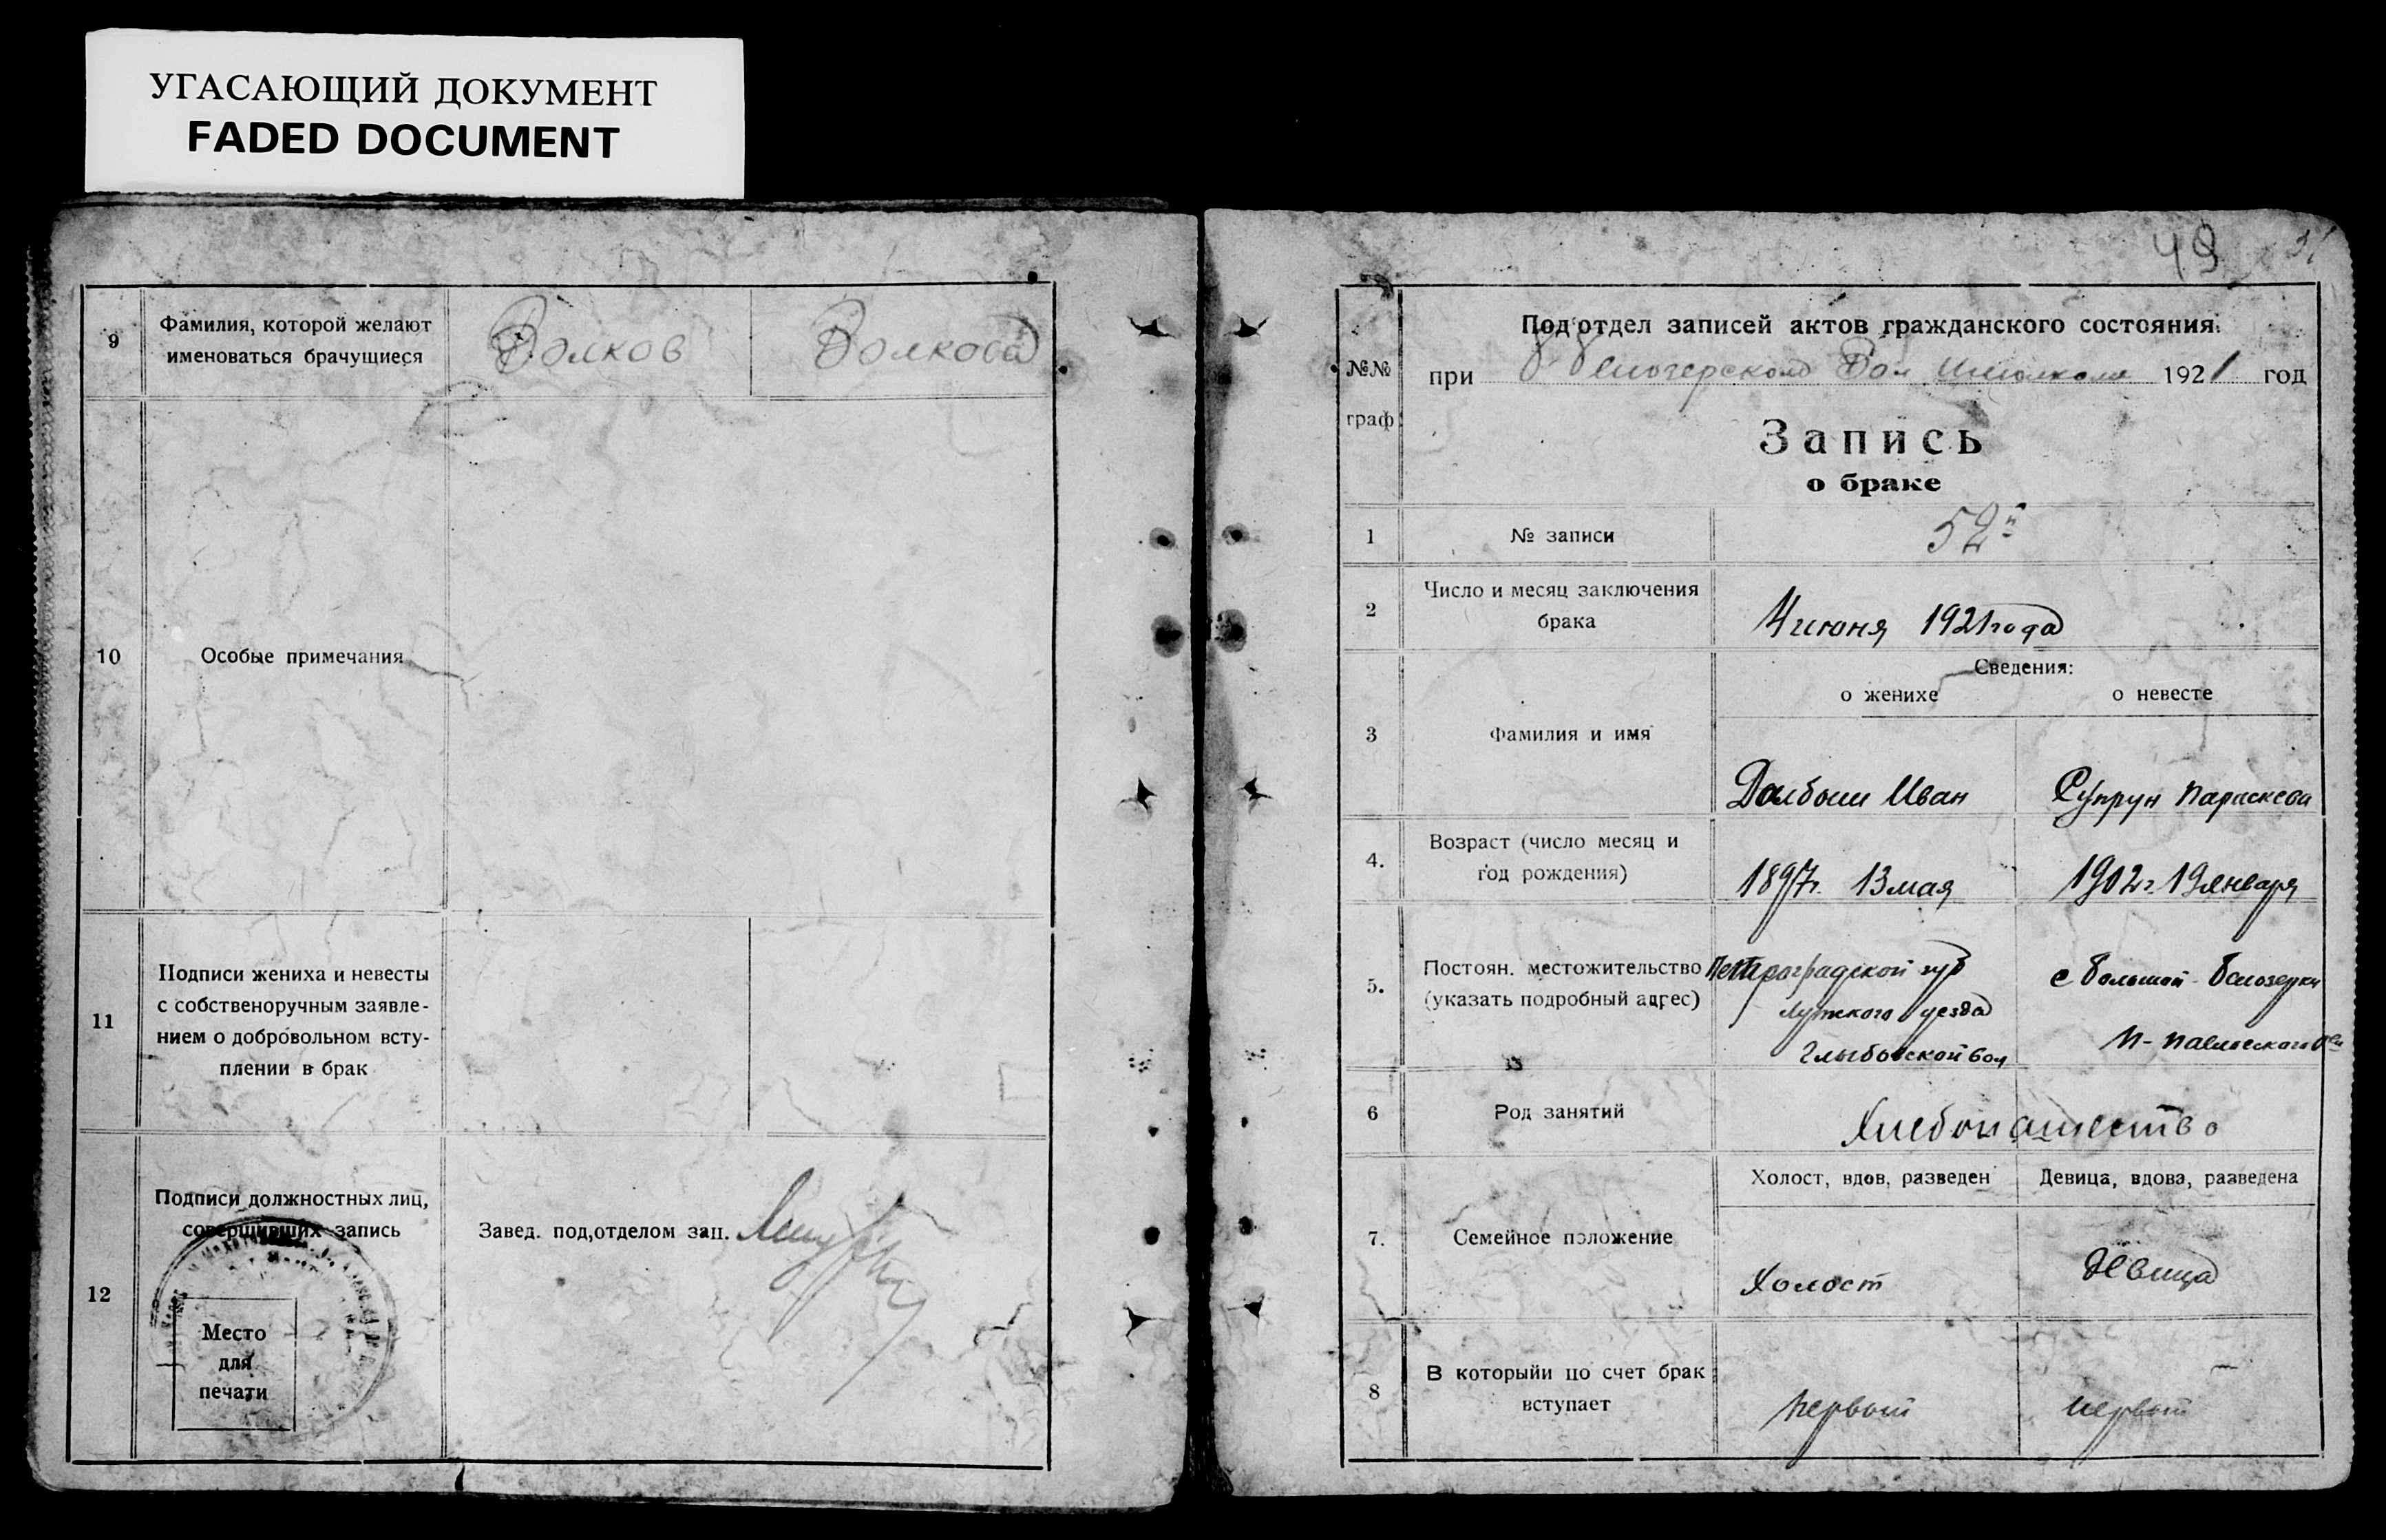 УГАСАЮЩИЙ ДОКУМЕНТ
FADED DOCUMENT
9
Фамилия, которой желают
именоваться брачущиеся
Волков
Волкова
10
Особые примечания
11
Подписи жениха и невесты
с собственоручным заявле-
нием о добровольном всту-
плении в брак
12
Подписи должностных лиц,
совершивших запись
Завед. под,отделом зап.
Место
для
печати
49
31
№№
граф
Под'отдел записей актов гражданского состояния.
при Вол 1921 год
Запись
о браке
1
№ записи
52
2
Число и месяц заключения
брака
4 июня 1921 года
Сведения:
о женихе
о невесте
3
Фамилия и имя
Иван
Супрун Параскева
4.
Возраст (число месяц и
год рождения)
1897г. 13 мая
1902г. 19 января
5.
Постоян. местожительство
(указать подробный адрес)
Петроградской губ
Лужского уезда
Глыбовской вол
с Большой-Белозерки
П-Павловского
6
Род занятий
Хлебопашество
7.
Семейное положение
Холост, вдов, разведен
Девица, вдова, разведена
Холост
Девица
8
В которыйи по счет брак
вступает
первый
первый